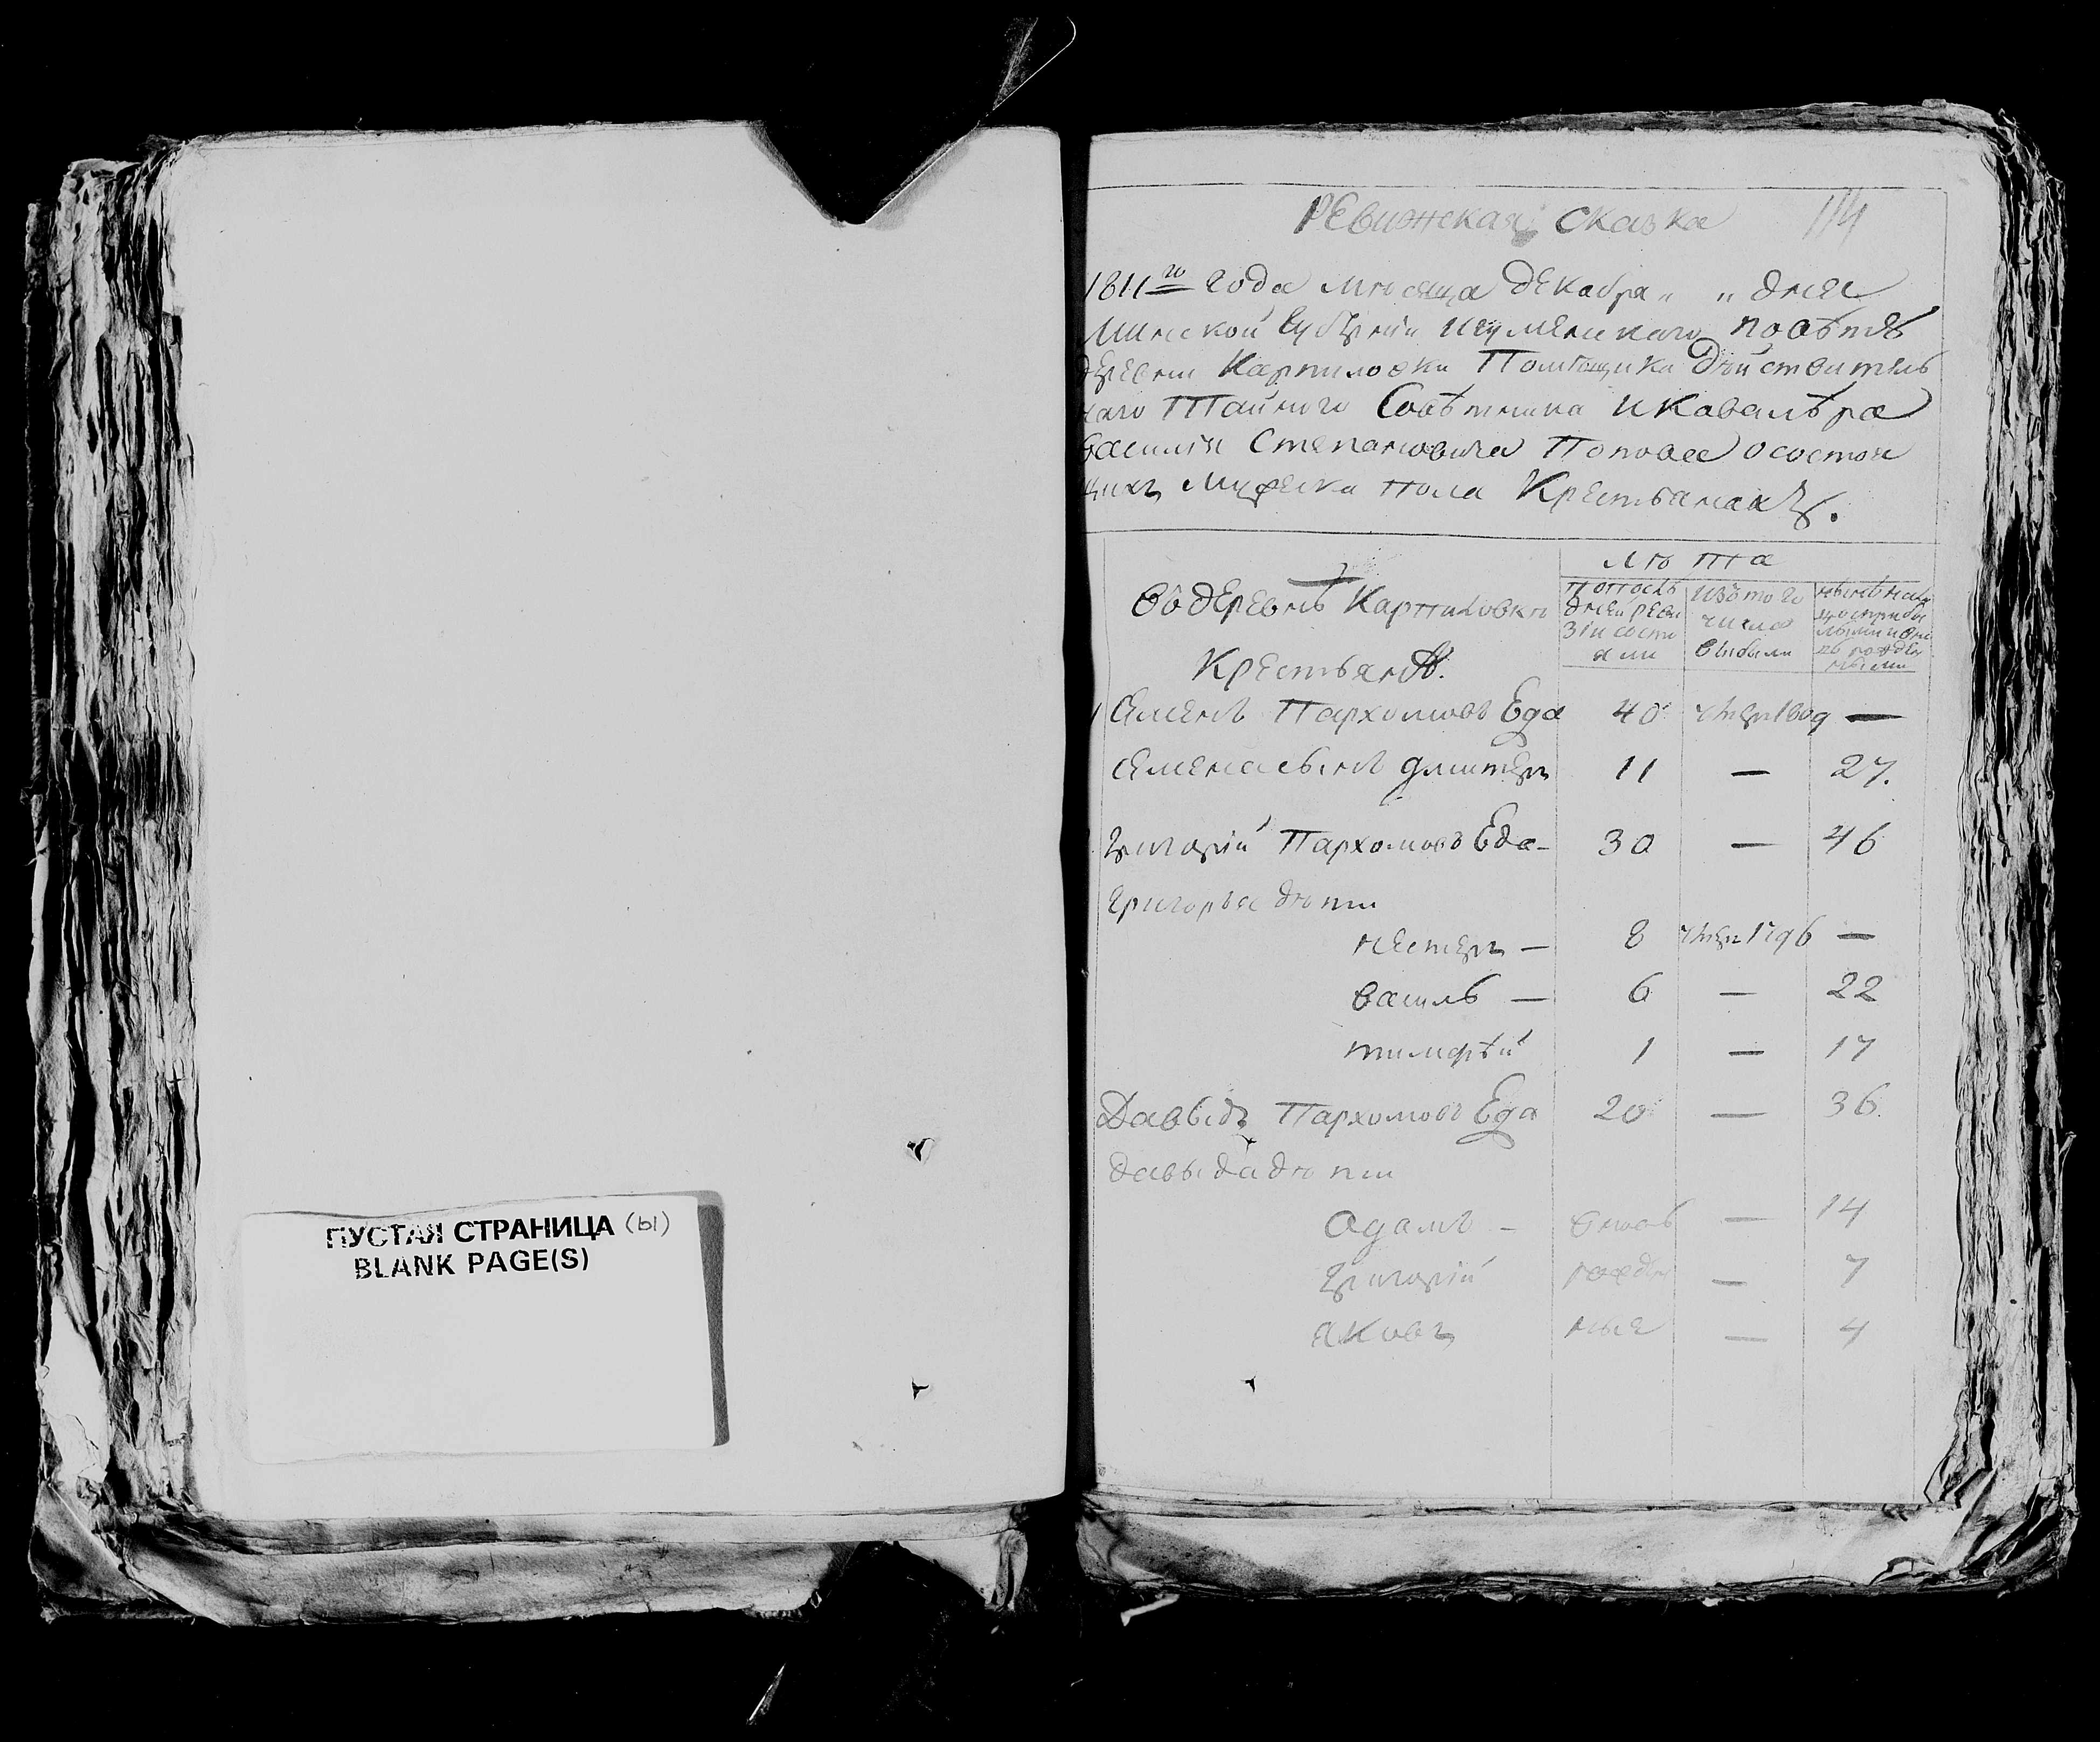 ПУСТАЯ СТРАНИЦА (ы)
BLANK PAGE(S)
РЕвижская сказка 114
1811го года мѣсяца декабря „ „ дня
Минской Губерніи Игуменскаго повѣта
деревни Карпиловки Помѣщика Дѣйствитель
наго Тайного Совѣтника и Кавалѣра
Василія Степановича Попова о состоя
щихъ мужеска пола Крестьянахъ.
Лѣта
Во деревнѣ Карпиловки
Крестьянъ.
по послѣ
дней реви
зіи состо
яли
изъ того
числа
выбыли
Семенъ Пархомовъ Еда 40 умер 1809 —
Семена сынъ дмитеръ 11 — 27.
Григорій Пархомовъ Еда — 30 — 46
Григорья дѣти
нестеръ — 8 умер 1796 —
василь — 6 — 22
тимофѣй 1 — 17
Давыдъ Пархомовъ Еда 20 — 36.
давыда дѣти
адамъ — вновь — 14
григорій рожде — 7
яковъ ные — 4